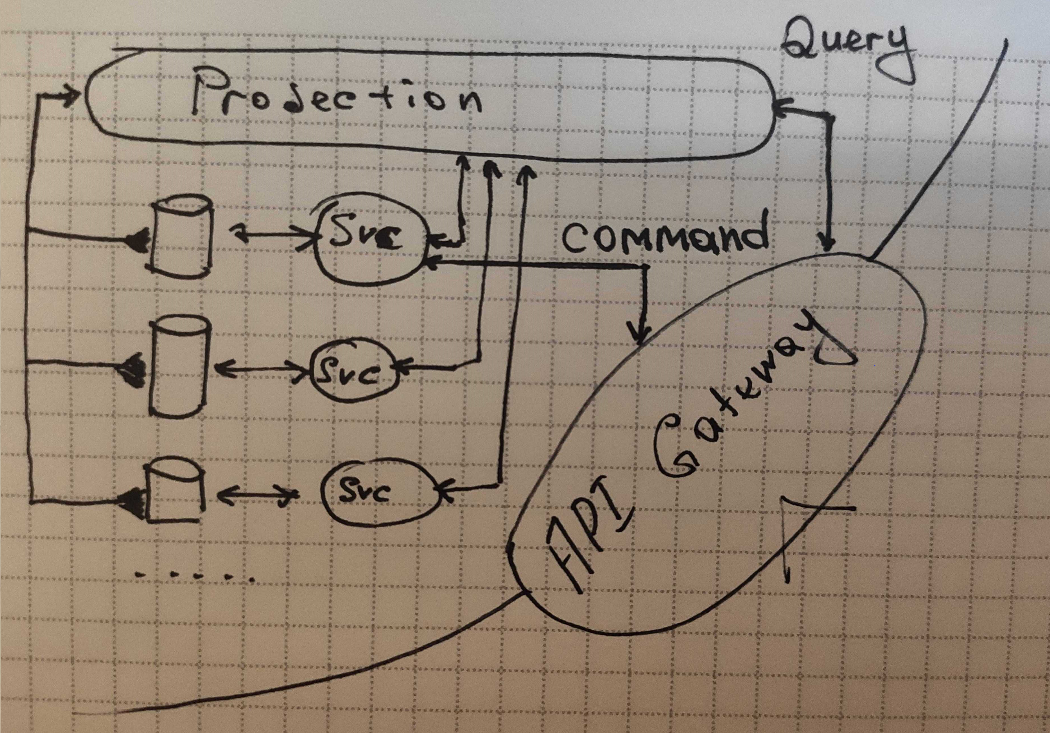 Query
Projection
Svc
command
Svc
Svc
API Gateway
.....